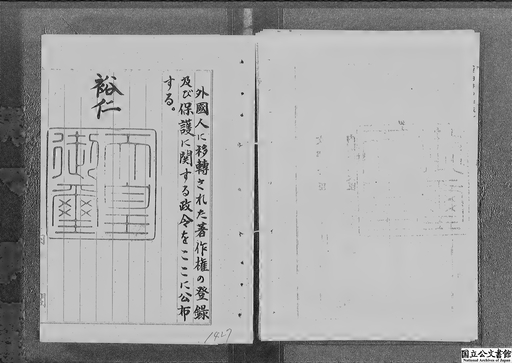 外國人に移轉された著作権の登録
及び保護に関する政令をここに公布
する。
裕仁
天皇
御璽
1427
国立公文書館
National Archives of Japan